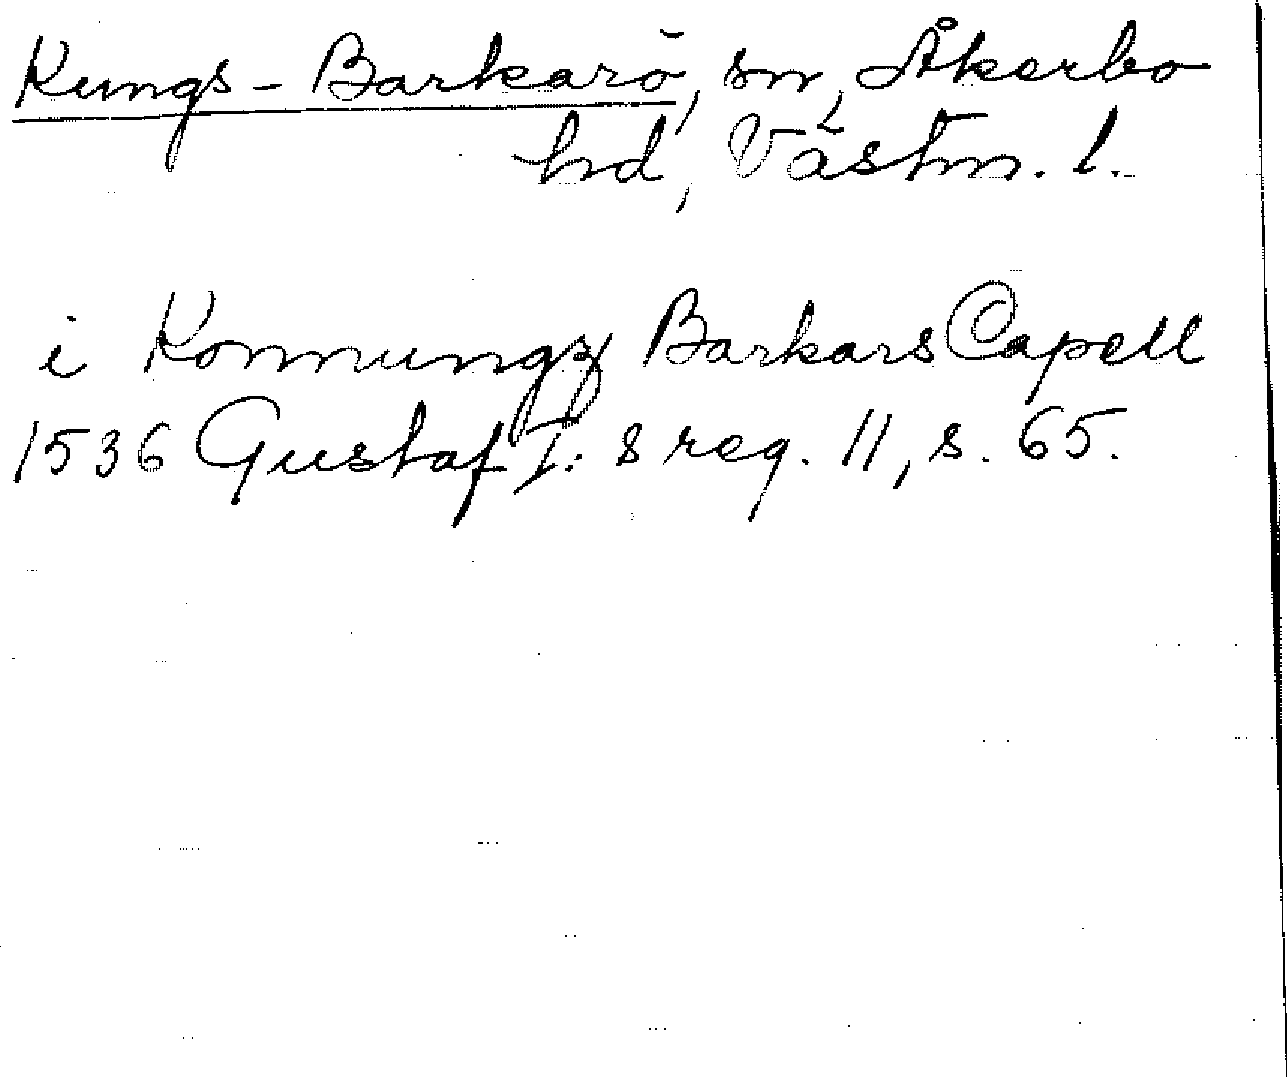 Kungs-Barkarö, sn, Åkerbo
hd, Västm. l.
i Konnungz Barkars Capell
1536 Gustaf I:s reg. 11, s. 65.